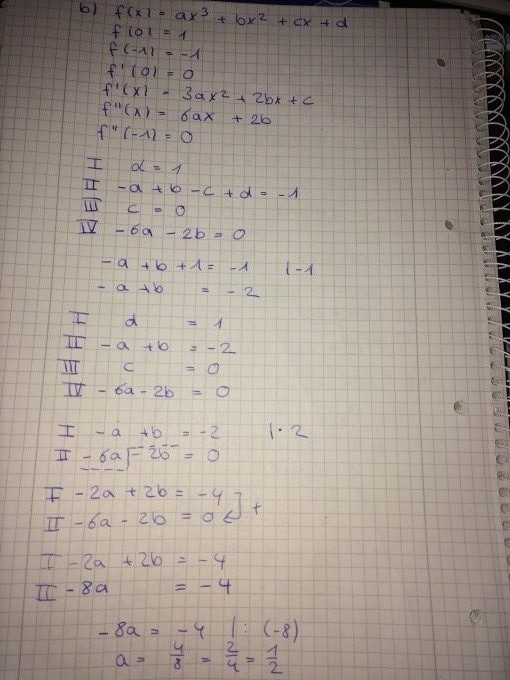 b) f(x) = ax³ + bx² + cx + d
f(0) = 1
f(-1) = -1
f'(0) = 0
f'(x) = 3ax² + 2bx + c
f''(x) = 6ax + 2b
f''(-1) = 0
I d = 1
II -a + b - c + d = -1
III c = 0
IV -6a - 2b = 0
-a + b + 1 = -1 | -1
-a + b = -2
I d = 1
II -a + b = -2
III c = 0
IV -6a - 2b = 0
I -a + b = -2 | · 2
II -6a - 2b = 0
I -2a + 2b = -4
II -6a - 2b = 0 +
I -2a + 2b = -4
II -8a = -4
-8a = -4 | : (-8)
a = 4/8 = 2/4 = 1/2